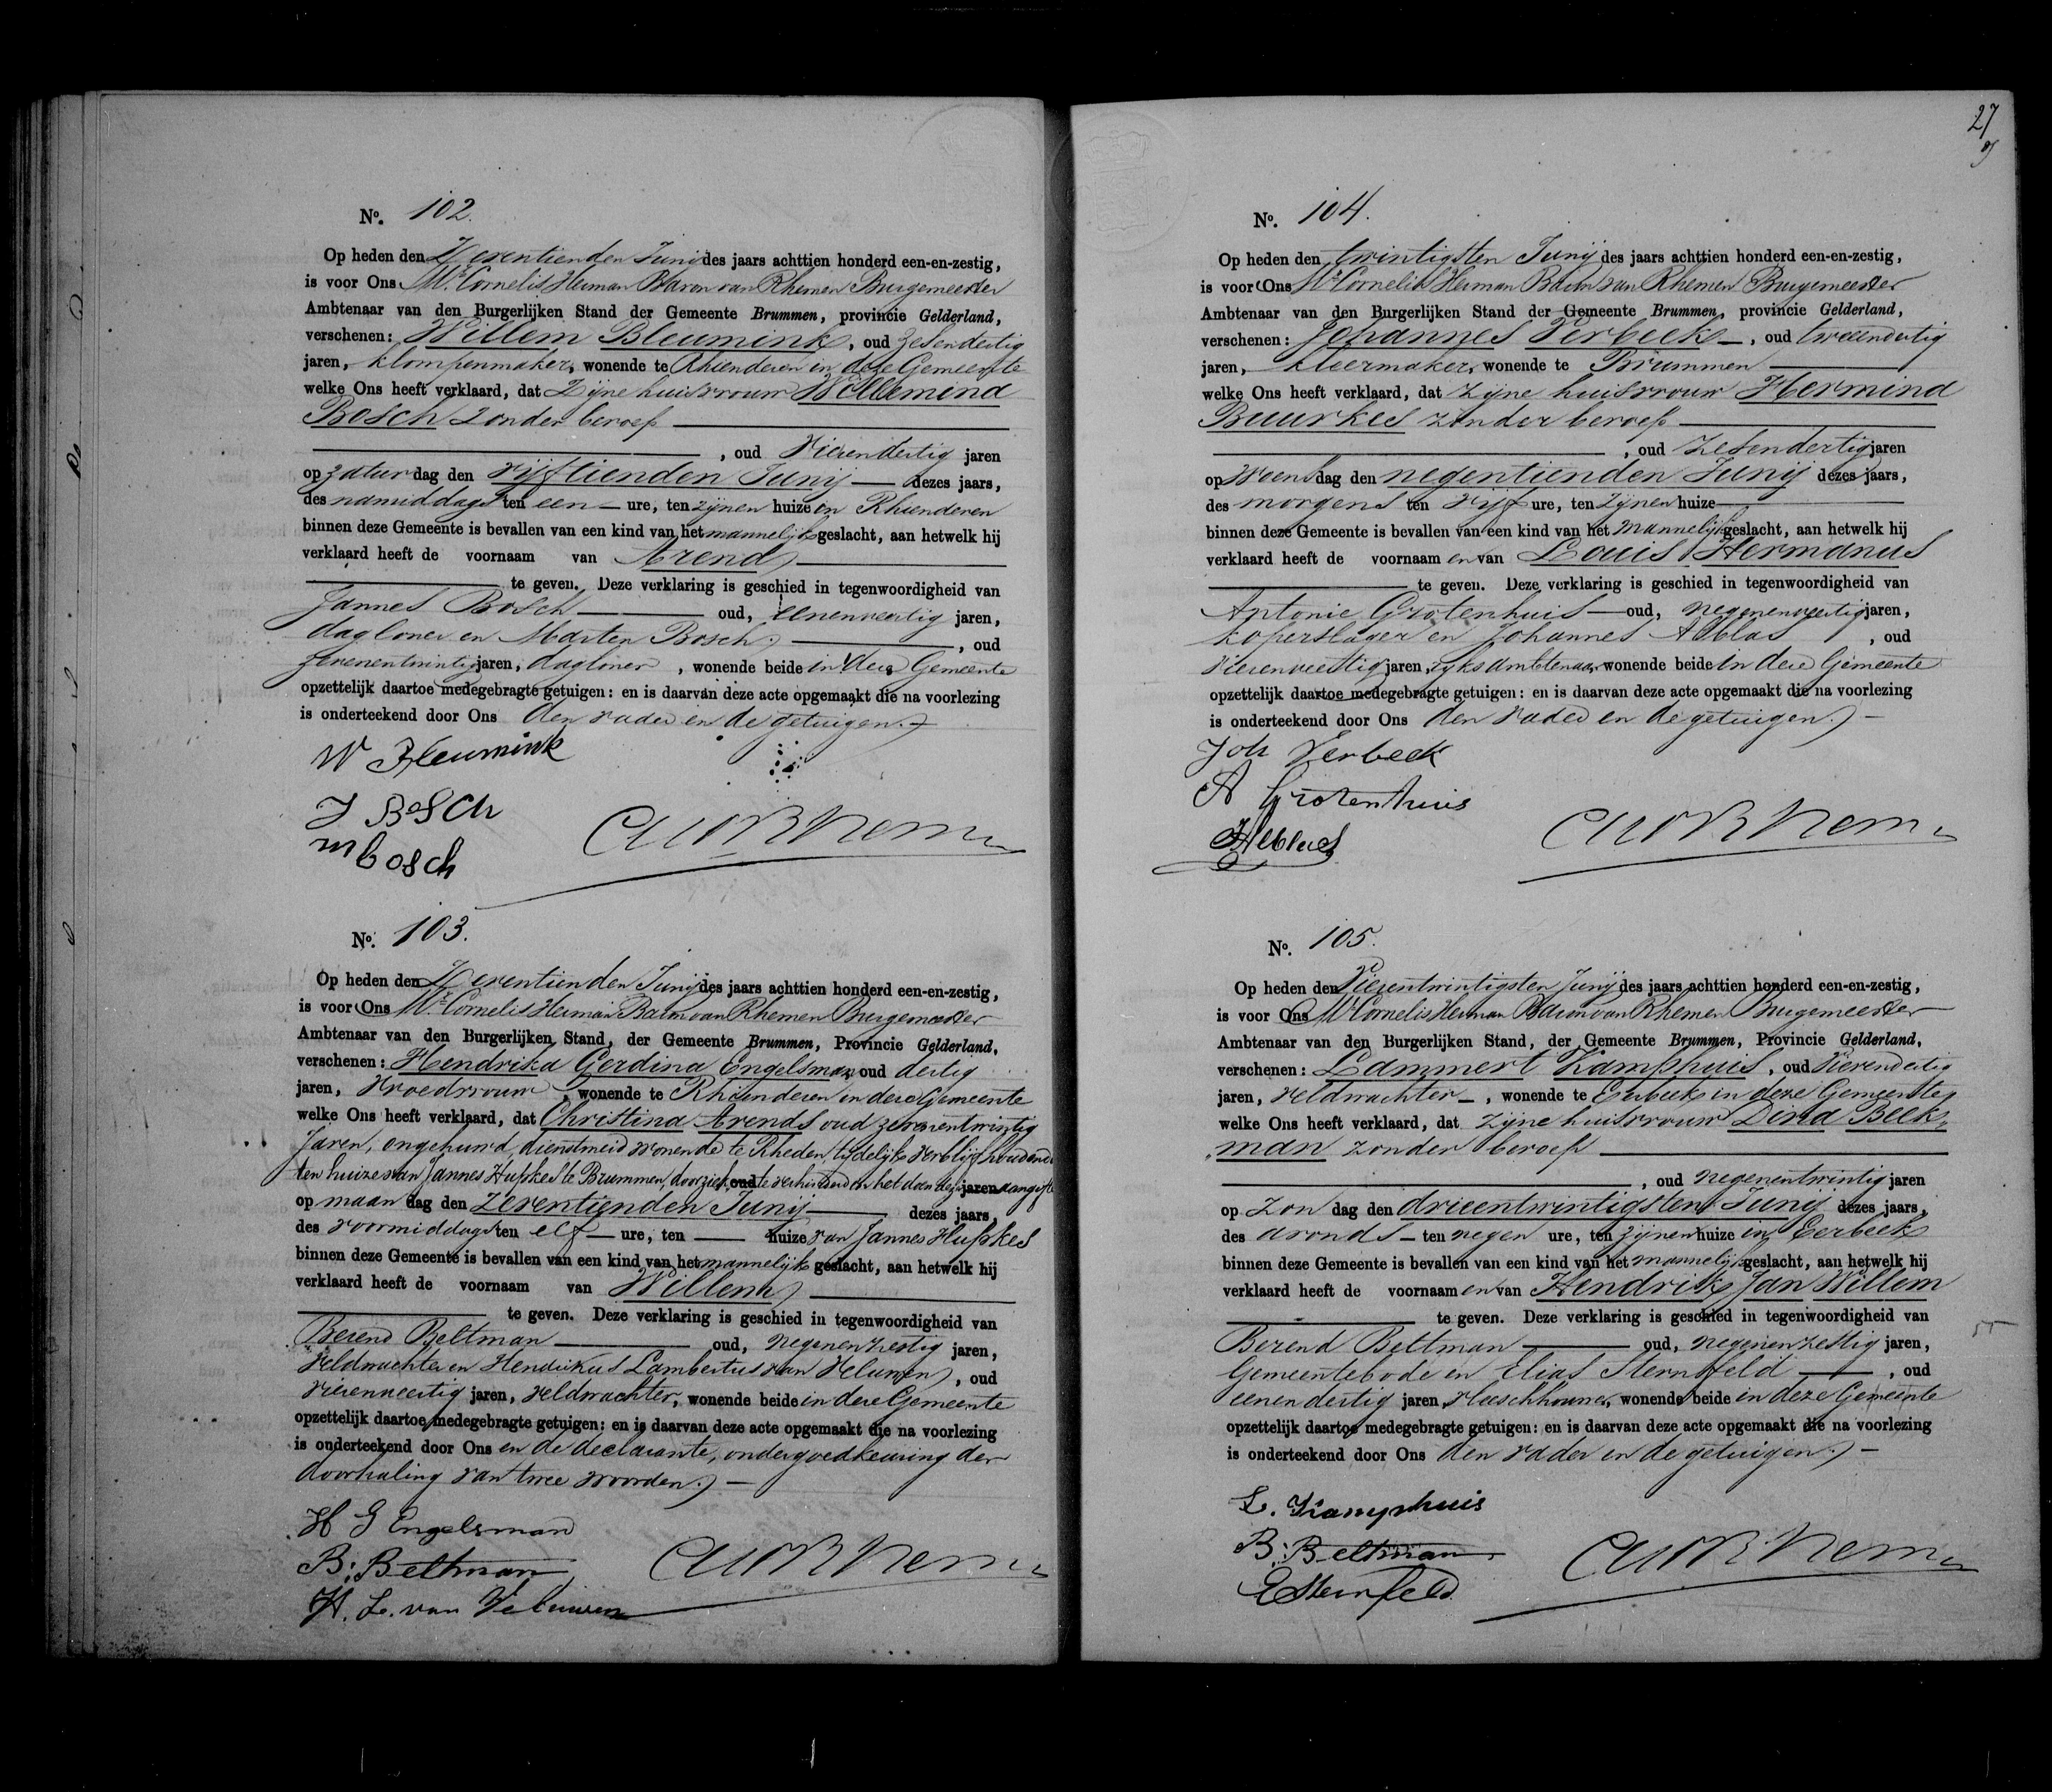 No. 102.
Op heden den Zeventienden Junij des jaars achttien honderd een-en-zestig,
is voor Ons Mr. Cornelis Herman Baron van Rhemen Burgemeester
Ambtenaar van den Burgerlijken Stand der Gemeente Brummen, provincie Gelderland,
verschenen: Willem Bleumink, oud zesendertig
jaren, klompenmaker, wonende te Rhienderen in deze Gemeente
welke Ons heeft verklaard, dat Zijne huisvrouw Willemina
Bosch zonder beroep
, oud vierendertig jaren
op zaturdag den vijftienden Junij dezes jaars,
des namiddags ten een ure, ten zijnen huize in Rhienderen
binnen deze Gemeente is bevallen van een kind van het mannelijk geslacht, aan hetwelk hij
verklaard heeft de voornaam van Arend
te geven. Deze verklaring is geschied in tegenwoordigheid van
Jannes Bosch oud, eenenveertig jaren,
daglooner en Marten Bosch, oud
zevenentwintig jaren, daglooner, wonende beide in deze Gemeente
opzettelijk daartoe medegebragte getuigen: en is daarvan deze acte opgemaakt die na voorlezing
is onderteekend door Ons den vader en de getuigen.
W Bleumink
J Bosch
m bosch
No. 103.
Op heden den Zeventienden Junij des jaars achttien honderd een-en-zestig,
is voor Ons Mr. Cornelis Herman Baron van Rhemen Burgemeester
Ambtenaar van den Burgerlijken Stand, der Gemeente Brummen, Provincie Gelderland,
verschenen: Hendrika Gerdina Engelsman, oud dertig
jaren, Vroedvrouw, wonende te Rhienderen in deze Gemeente
welke Ons heeft verklaard, dat Christina Arends oud zevenentwintig
Jaren, ongehuwd, dienstmeid wonende te Rheden, tijdelijk verblijf houdende
ten huize van Jannes Hupkes te Brummen, door ziekte oud verhinderd in het doen dezer jaren aangifte
op maandag den Zeventienden Junij dezes jaars,
des voormiddags ten elf ure, ten huize van Jannes Hupkes
binnen deze Gemeente is bevallen van een kind van het mannelijk geslacht, aan hetwelk hij
verklaard heeft de voornaam van Willem
te geven. Deze verklaring is geschied in tegenwoordigheid van
Berend Beltman oud, negenenzestig jaren,
Veldwachter en Hendrikus Lambertus van Veluwen, oud
vierenveertig jaren, veldwachter, wonende beide in deze Gemeente
opzettelijk daartoe medegebragte getuigen: en is daarvan deze acte opgemaakt die na voorlezing
is onderteekend door Ons en de declarante, onder goedkeuring der
doorhaling van twee woorden.
H G Engelsman
B: Beltman
H. L. van Veluwen
27
No. 104.
Op heden den twintigsten Junij des jaars achttien honderd een-en-zestig,
is voor Ons Mr. Cornelis Herman Baron van Rhemen Burgemeester
Ambtenaar van den Burgerlijken Stand der Gemeente Brummen, provincie Gelderland,
verschenen: Johannes Verbeek, oud tweeendertig
jaren, kleermaker, wonende te Brummen
welke Ons heeft verklaard, dat zijne huisvrouw Hermina
Buurkes zonder beroep
, oud zesendertig jaren
op Woensdag den negentienden Junij dezes jaars,
des morgens ten vijf ure, ten zijnen huize
binnen deze Gemeente is bevallen van een kind van het mannelijk geslacht, aan hetwelk hij
verklaard heeft de voornaam en van Louis Hermanus
te geven. Deze verklaring is geschied in tegenwoordigheid van
Antonie Grotenhuis oud, negenenveertig jaren,
koperslager en Johannes Alblas, oud
vierenveertig jaren, rijksambtenaar, wonende beide in deze Gemeente
opzettelijk daartoe medegebragte getuigen: en is daarvan deze acte opgemaakt die na voorlezing
is onderteekend door Ons den vader en de getuigen.
Joh Verbeek
A Grotenhuis
J Alblas
No. 105.
Op heden den Vierentwintigsten Junij des jaars achttien honderd een-en-zestig,
is voor Ons Mr. Cornelis Herman Baron van Rhemen Burgemeester
Ambtenaar van den Burgerlijken Stand, der Gemeente Brummen, Provincie Gelderland,
verschenen: Lammert Kamphuis, oud Vierendertig
jaren, veldwachter, wonende te Eerbeek in deze Gemeente
welke Ons heeft verklaard, dat zijne huisvrouw Dina Beek-
man zonder beroep
, oud negenentwintig jaren
op Zondag den drieentwintigsten Junij dezes jaars,
des avonds ten negen ure, ten zijnen huize in Eerbeek
binnen deze Gemeente is bevallen van een kind van het mannelijk geslacht, aan hetwelk hij
verklaard heeft de voornaam en van Hendrik Jan Willem
te geven. Deze verklaring is geschied in tegenwoordigheid van
Berend Beltman oud, negenenzestig jaren,
Gemeentebode en Elias Sternfeld, oud
eenendertig jaren, vleeschhouwer, wonende beide in deze Gemeente
opzettelijk daartoe medegebragte getuigen: en is daarvan deze acte opgemaakt die na voorlezing
is onderteekend door Ons den vader en de getuigen.
L. Kamphuis
B: Beltman
E Sternfeld